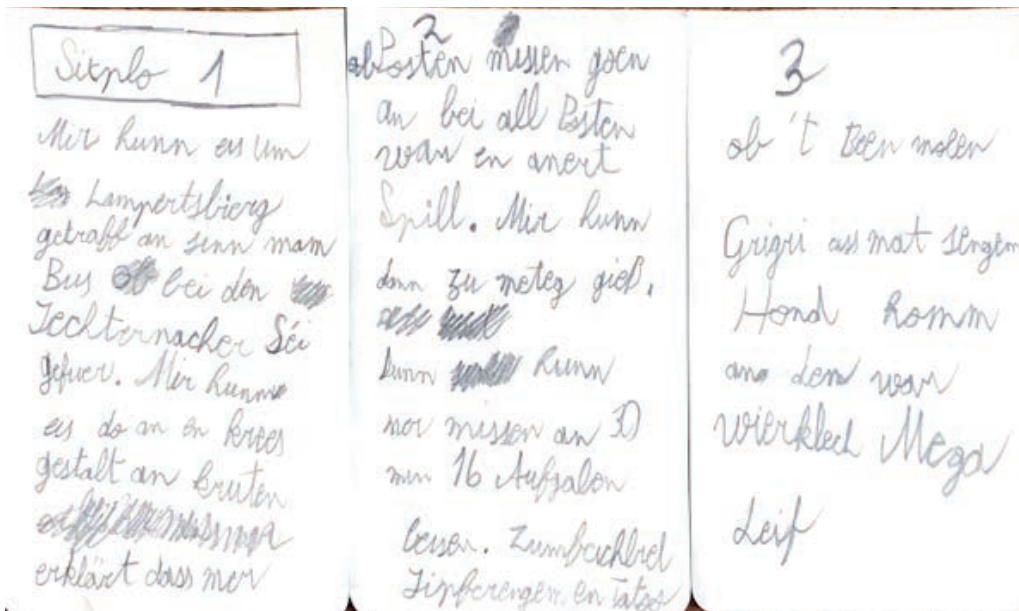 Sitplo 1
Mir hunn eis um
Lampertsbierg
getraff an sinn mam
Bus bei den
Iechternacher Séi
gefuer. Mir hunn
eis do an en krees
gestalt an kruten
erklärt dass mer
2
ob Posten missen goen
an bei all Posten
war en anert
Spill. Mir hunn
dann zu meteg gieß.
Dunn hunn
mer missen an 30
min 16 Aufgaben
léisen. Zum
en Tatoo
3
ob 't Been molen
Grigri ass mat sengem
Hond komm
an dem war
wierklech Mega
Leif